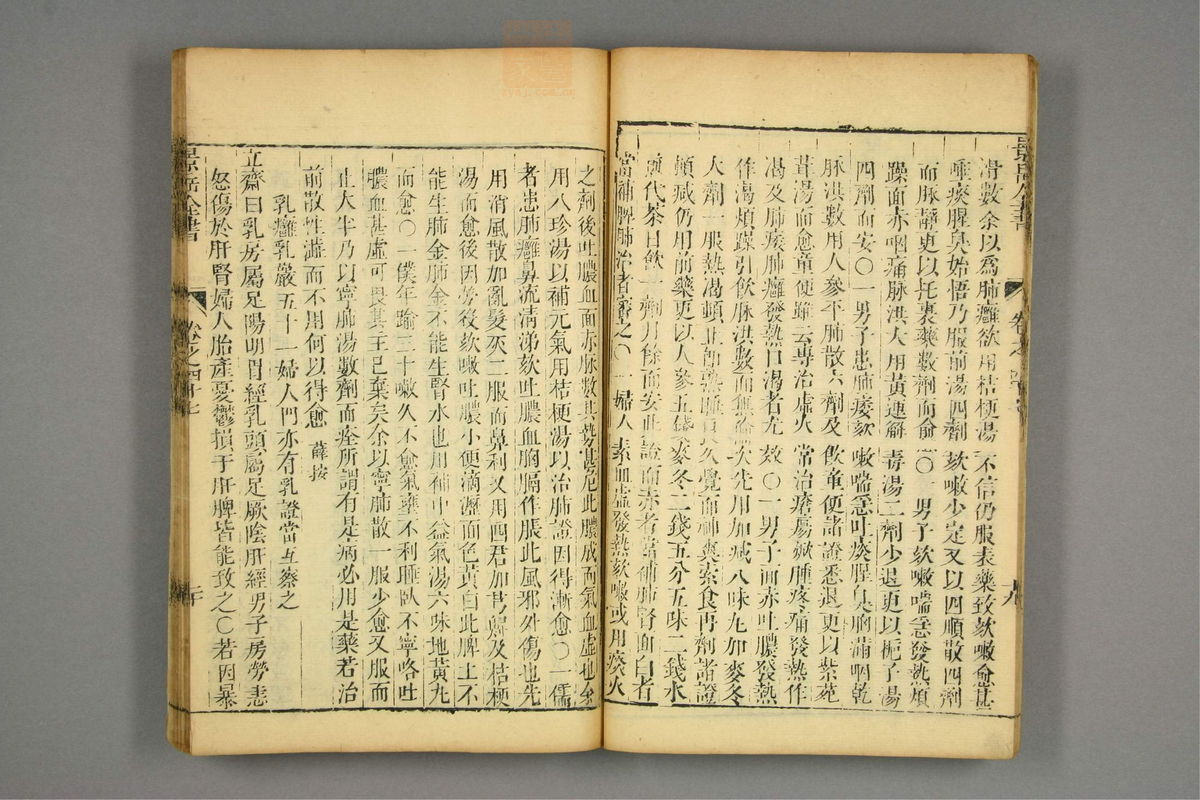 滑數余以爲肺癰欲用桔梗湯不信仍服表藥致欬嗽愈甚
唾痰腥臭始悟乃服前湯四劑欬嗽少定又以四順散四劑
而脉靜更以托裏藥數劑而愈○一男子欬嗽喘急發熱煩
躁面赤咽痛脉洪大用黃連解毒湯二劑少退更以梔子湯
四劑而安○一男子患肺痿欬嗽喘急吐痰腥臭胸滿咽乾
脉洪數用人參平肺散六劑及飲童便諸證悉退更以紫菀
茸湯而愈童便雖云專治虛火常治瘡瘍焮腫疼痛發熱作
渴及肺痿肺癰發熱口渴者尤效○一男子面赤吐膿發熱
作渴煩躁引飲脉洪數而無倫次先用加減八味丸加麥冬
大劑一服熱渴頓止卽熟睡良久覺而神爽索食再劑諸證
頓減仍用前藥更以人參五錢麥冬二錢五分五味二錢水
煎代茶日飲一劑月餘而安此證面赤者當補肺腎面白者
當補脾肺治者審之○一婦人素血虛發熱欬嗽或用痰火
之劑後吐膿血面赤脉數其勢甚危此膿成而氣血虛也余
用八珍湯以補元氣用桔梗湯以治肺證因得漸愈○一儒
者患肺癰鼻流清涕欬吐膿血胸膈作脹此風邪外傷也先
用消風散加亂髮灰二服而鼻利又用四君加芎歸及桔梗
湯而愈後因勞役欬嗽吐膿小便滴瀝面色黃白此脾土不
能生肺金肺金不能生腎水也用補中益氣湯六味地黃丸
而愈○一僕年踰三十嗽久不愈氣壅不利睡臥不寧咯吐
膿血甚虛可畏其主已棄矣余以寧肺散一服少愈又服而
止大半乃以寧肺湯數劑而痊所謂有是病必用是藥若治
前散性澁而不用何以得愈　薛按
乳癰乳巖五十一婦人門亦有乳證當互察之
立齋曰乳房屬足陽明胃經乳頭屬足厥陰肝經男子房勞恚
怒傷於肝腎婦人胎產憂鬱損于肝脾皆能致之○若因暴
景岳全書
卷之四十七